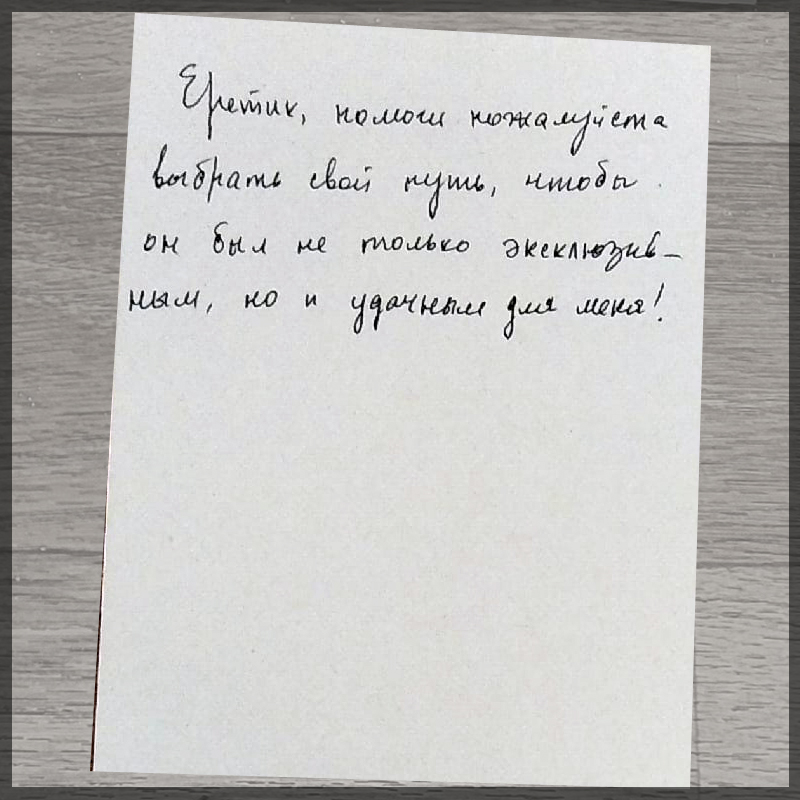 Еретик, помоги пожалуйста
выбрать свой путь, чтобы
он был не только эксклюзив-
ным, но и удачным для меня!